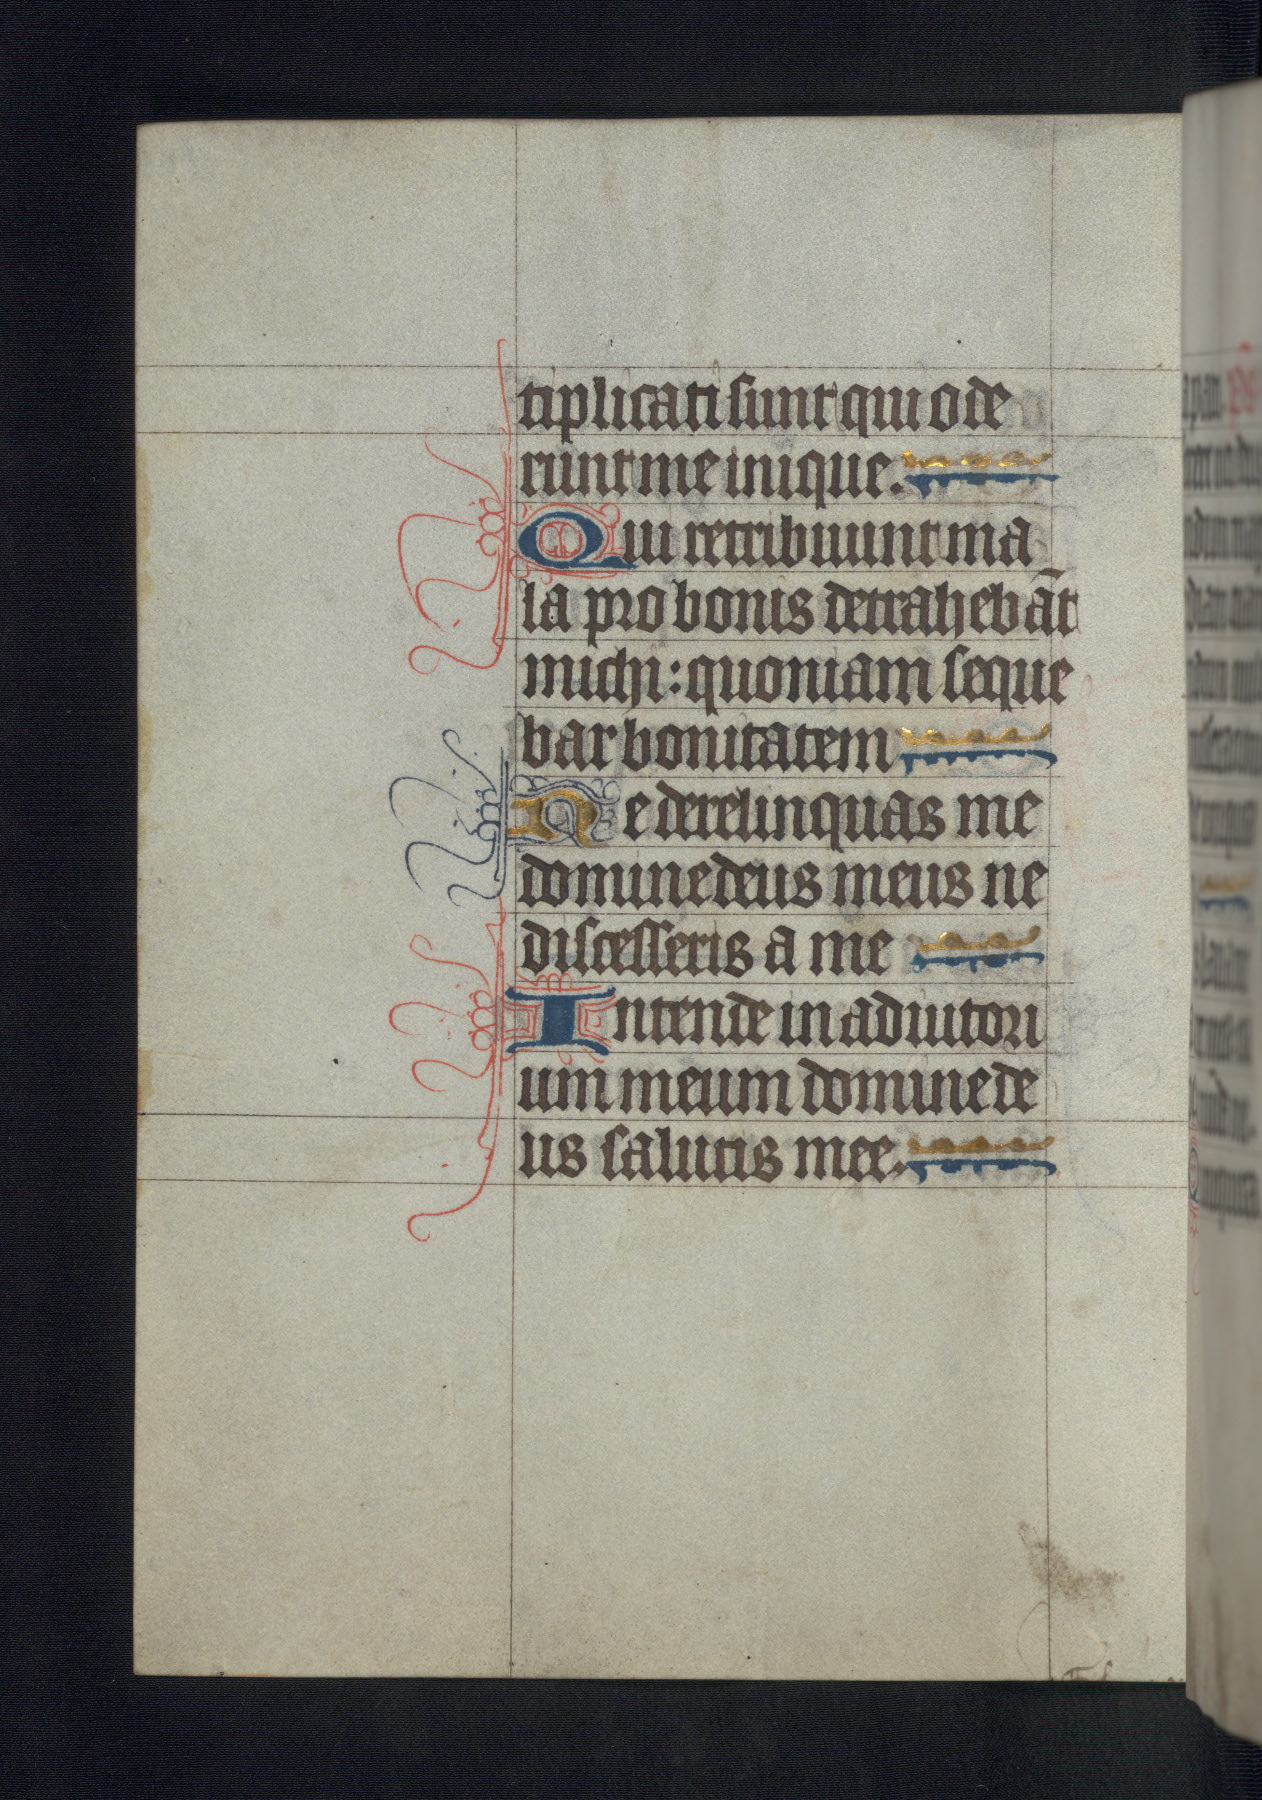 tiplicati sunt qui ode
runt me inique.
Qui retribuunt ma
la pro bonis detrahebāt
michi: quoniam seque
bar bonitatem
Ne derelinquas me
domine deus meus ne
discesseris a me
Intende in adiutori
um meum domine de
us salutis mee.